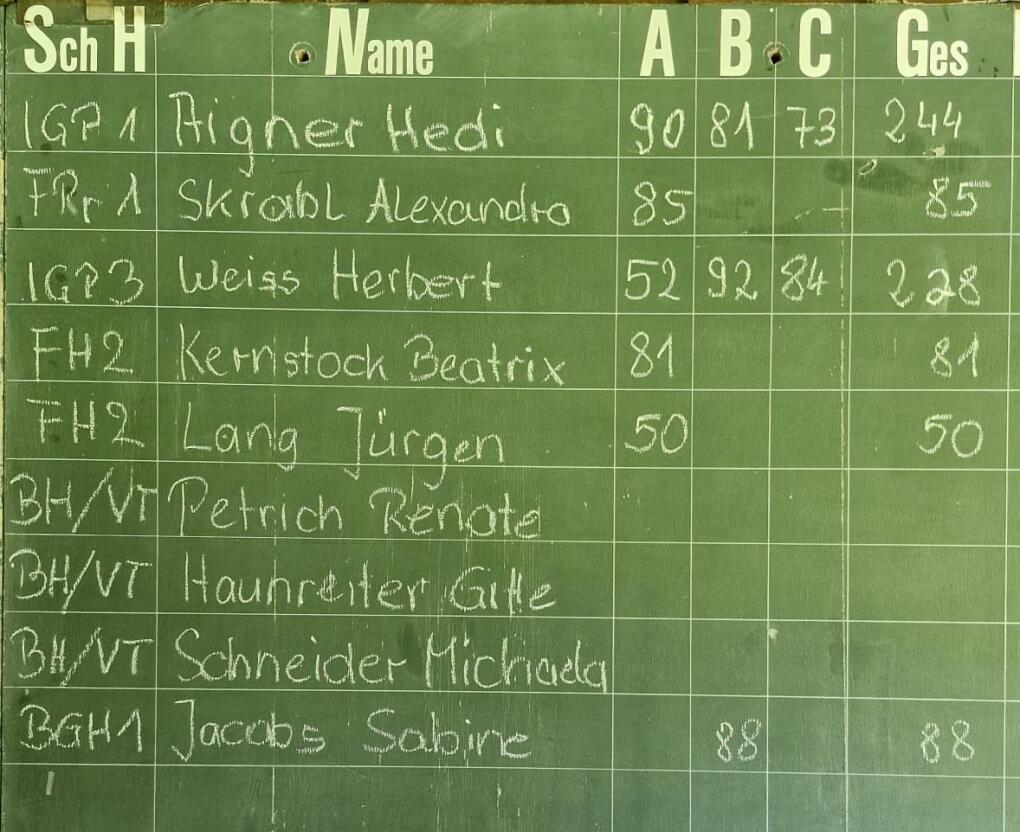 Sch H Name A B C Ges
IGP 1 Aigner Hedi 90 81 73 244
FRr 1 Skrabl Alexandra 85 85
IGP3 Weiss Herbert 52 92 84 228
FH2 Kernstock Beatrix 81 81
FH2 Lang Jürgen 50 50
BH/VT Petrich Renate
BH/VT Haunreiter Gitte
BH/VT Schneider Michaela
BGH1 Jacobs Sabine 88 88